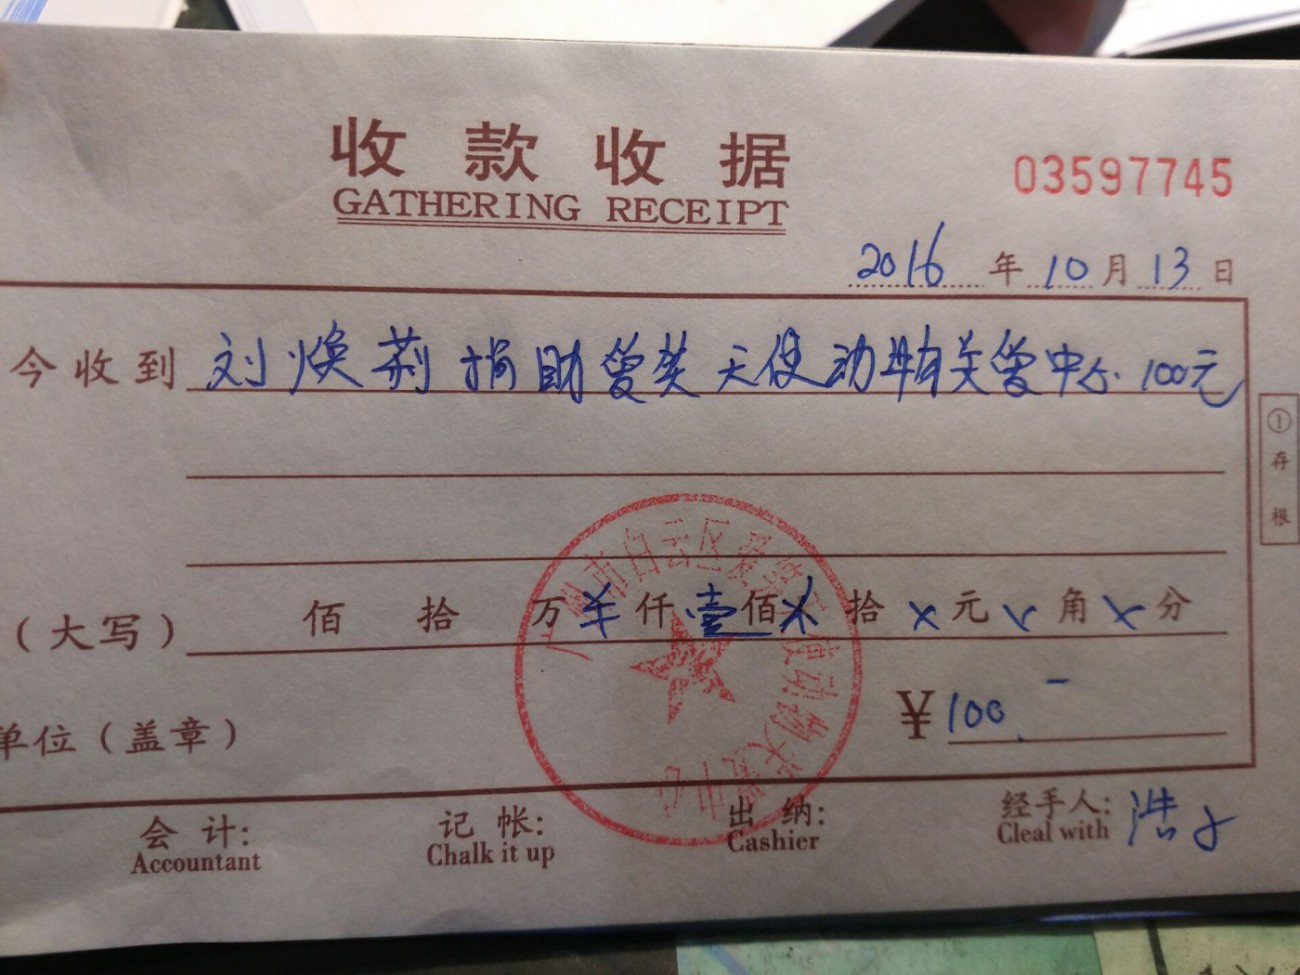 收款收据
GATHERING RECEIPT
03597745
2016年10月13日
今收到 刘焕荊捐助爱 天使动物关爱中心 100元
①存根
(大写) 佰 拾 万 仟壹佰 拾 x 元 x 角 x 分
单位(盖章)
¥100
广州市白云区爱 动物关爱中心
会计:
Accountant
记帐:
Chalk it up
出纳:
Cashier
经手人: 浩子
Cleal with